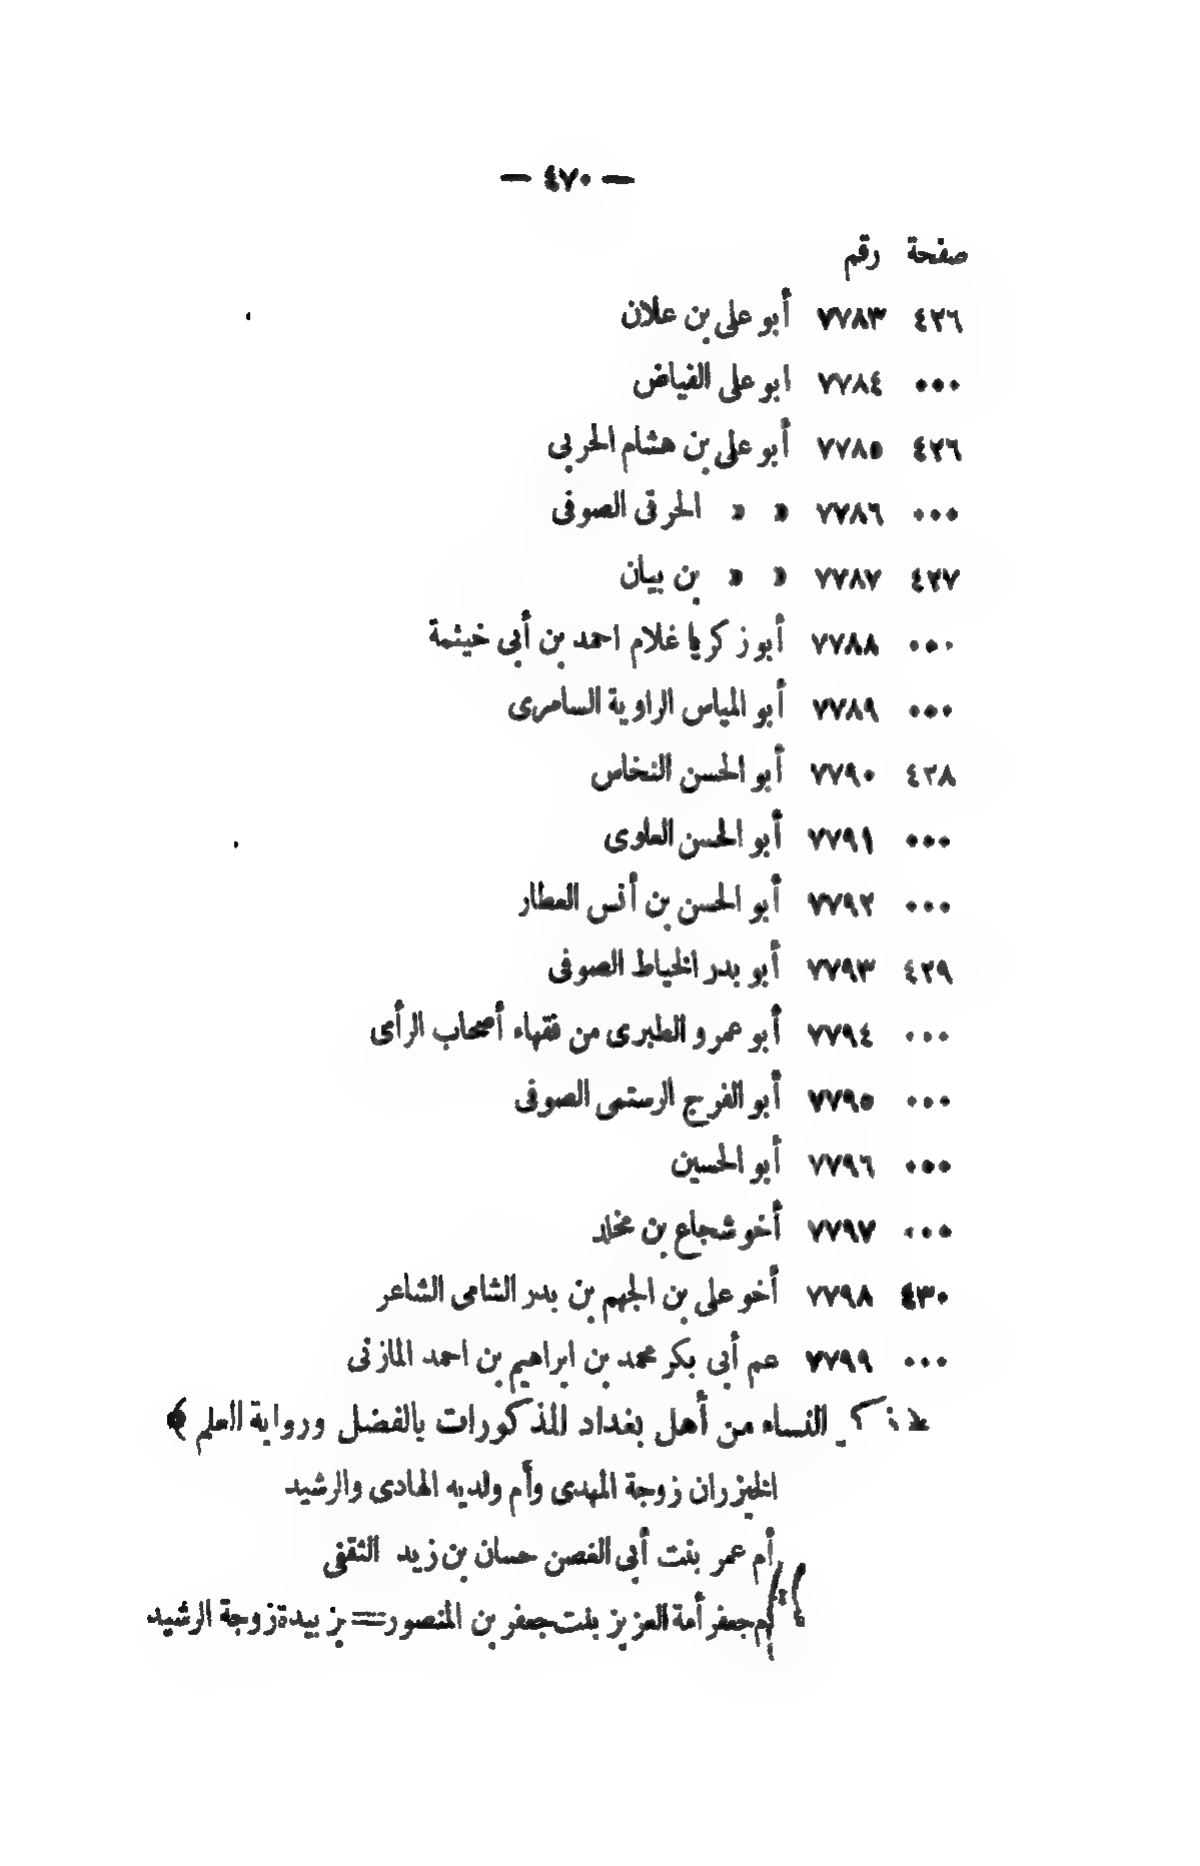 — ٤٧٠ —
صفحة رقم
٤٢٦ ٧٧٨٣ أبو على بن علان
٠٠٠ ٧٧٨٤ ابو على الفياض
٤٢٦ ٧٧٨٥ أبو على بن هشام الحربى
٠٠٠ ٧٧٨٦ « « الحرقى الصوفى
٤٢٧ ٧٧٨٧ « « بن بيان
٠٠٠ ٧٧٨٨ أبو زكريا غلام احمد بن أبى خيثمة
٠٠٠ ٧٧٨٩ أبو المياس الراوية السامرى
٤٢٨ ٧٧٩٠ أبو الحسن النخاس
٠٠٠ ٧٧٩١ أبو الحسن العلوى
٠٠٠ ٧٧٩٢ أبو الحسن بن أنس العطار
٤٢٩ ٧٧٩٣ أبو بدر الخياط الصوفى
٠٠٠ ٧٧٩٤ أبو عمرو الطبرى من فقهاء أصحاب الرأى
٠٠٠ ٧٧٩٥ أبو الفرج الرستمى الصوفى
٠٠٠ ٧٧٩٦ أبو الحسين
٠٠٠ ٧٧٩٧ أخو شجاع بن مخلد
٤٣٠ ٧٧٩٨ أخو على بن الجهم بن بدر الشامى الشاعر
٠٠٠ ٧٧٩٩ عم أبى بكر محمد بن ابراهيم بن احمد المازنى
﴿ ذكر النساء من أهل بغداد المذكورات بالفضل ورواية العلم ﴾
الخيزران زوجة المهدى وأم ولديه الهادى والرشيد
أم عمر بنت أبى الغصن حسان بن زيد الثقفى
أم جعفر أمة العزيز بنت جعفر بن المنصور = زبيدة زوجة الرشيد